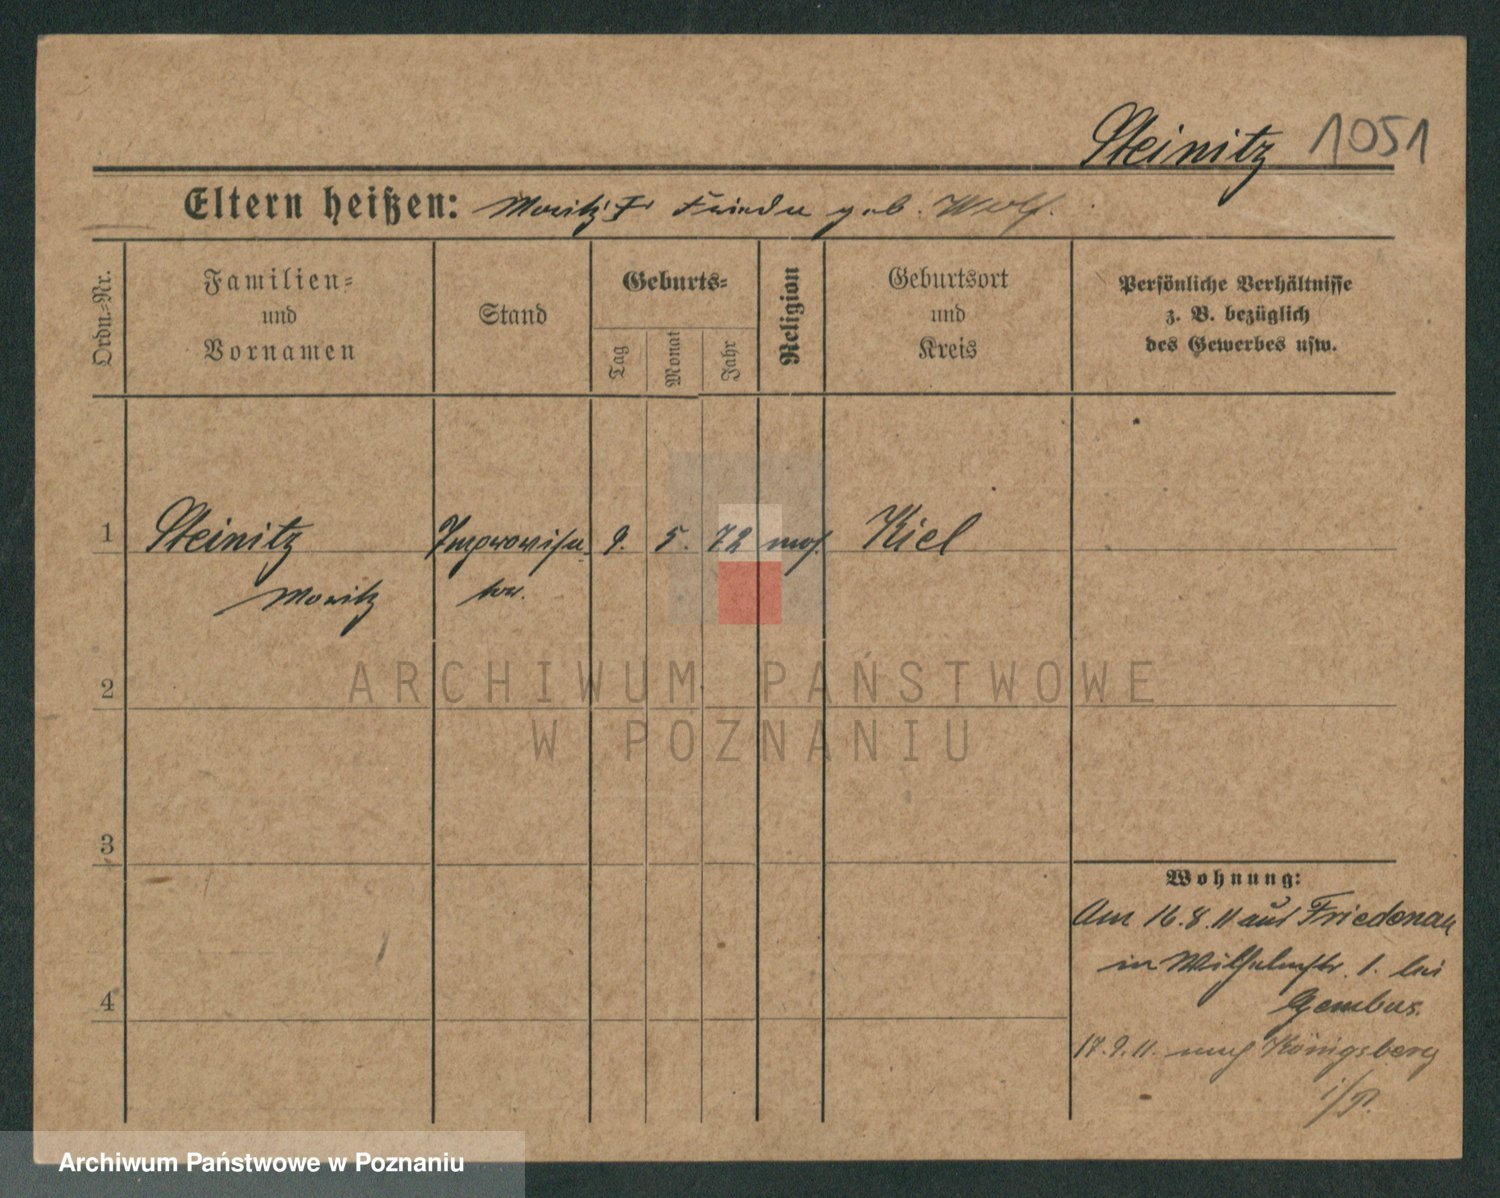 Steinitz 1051
Eltern heißen: Moritz u. Frieda geb. Wolf.
Ordn.=Nr.
Familien=
und
Vornamen
Stand
Geburts=
Tag
Monat
Jahr
Religion
Geburtsort
und
Kreis
Persönliche Verhältnisse
z. B. bezüglich
des Gewerbes usw.
1 Steinitz Improvisa 9. 5. 72 mos. Kiel
Moritz tor.
2
3
4
Wohnung:
Am 16.8.11 aus Friedenau
in Wilhelmstr. 1. bei
Gembus.
17.9.11. nach Königsberg
i/P.
ARCHIWUM PAŃSTWOWE
W POZNANIU
Archiwum Państwowe w Poznaniu